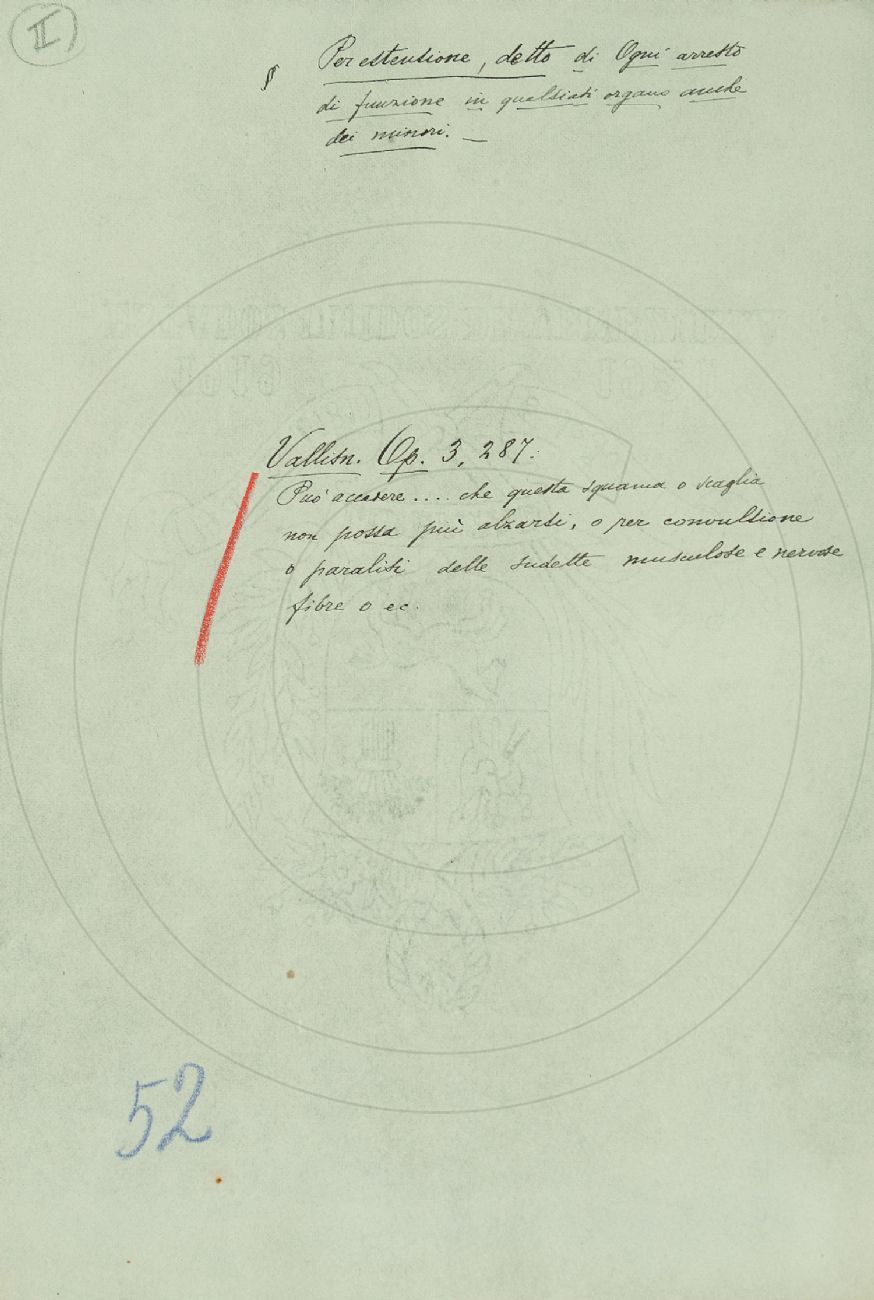 II
§ Per estensione, detto di Ogni arresto
di funzione in qualsiasi organo anche
dei minori. —
Vallisn. Op. 3, 287.
Può accadere .... che questa squama o scaglia
non possa più alzarsi, o per convulsione
o paralisi delle sudette musculose e nervose
fibre o ec.
52